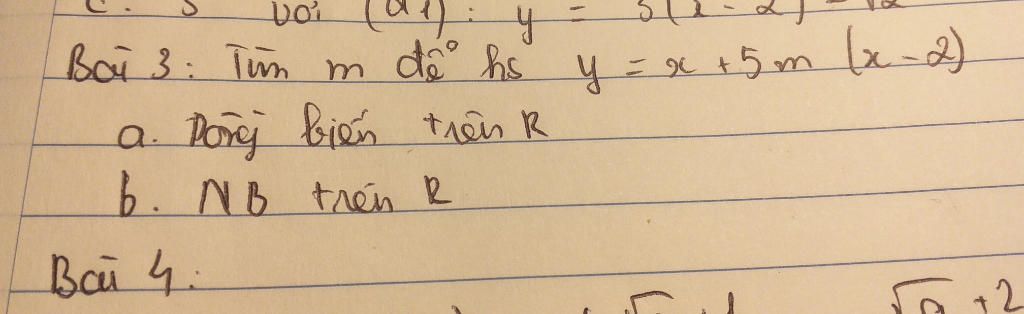 với (d1): y =
Bài 3: Tìm m để hs y = x + 5m (x - 2)
a. Đồng biến trên R
b. NB trên R
Bài 4: